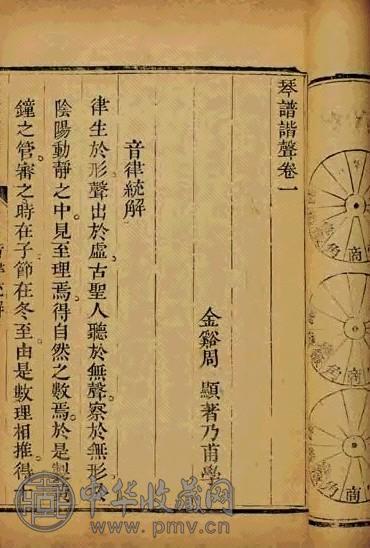 琴譜諧聲卷一
金谿周 顯著乃甫
音律統解
律生於形聲出於虛古聖人聽於無聲察於無形
陰陽動靜之中見至理焉得自然之數焉於是製
鐘之管審之時在子節在冬至由是數理相推得
商
角
商
商
角
中华收藏网
www.pmv.cn